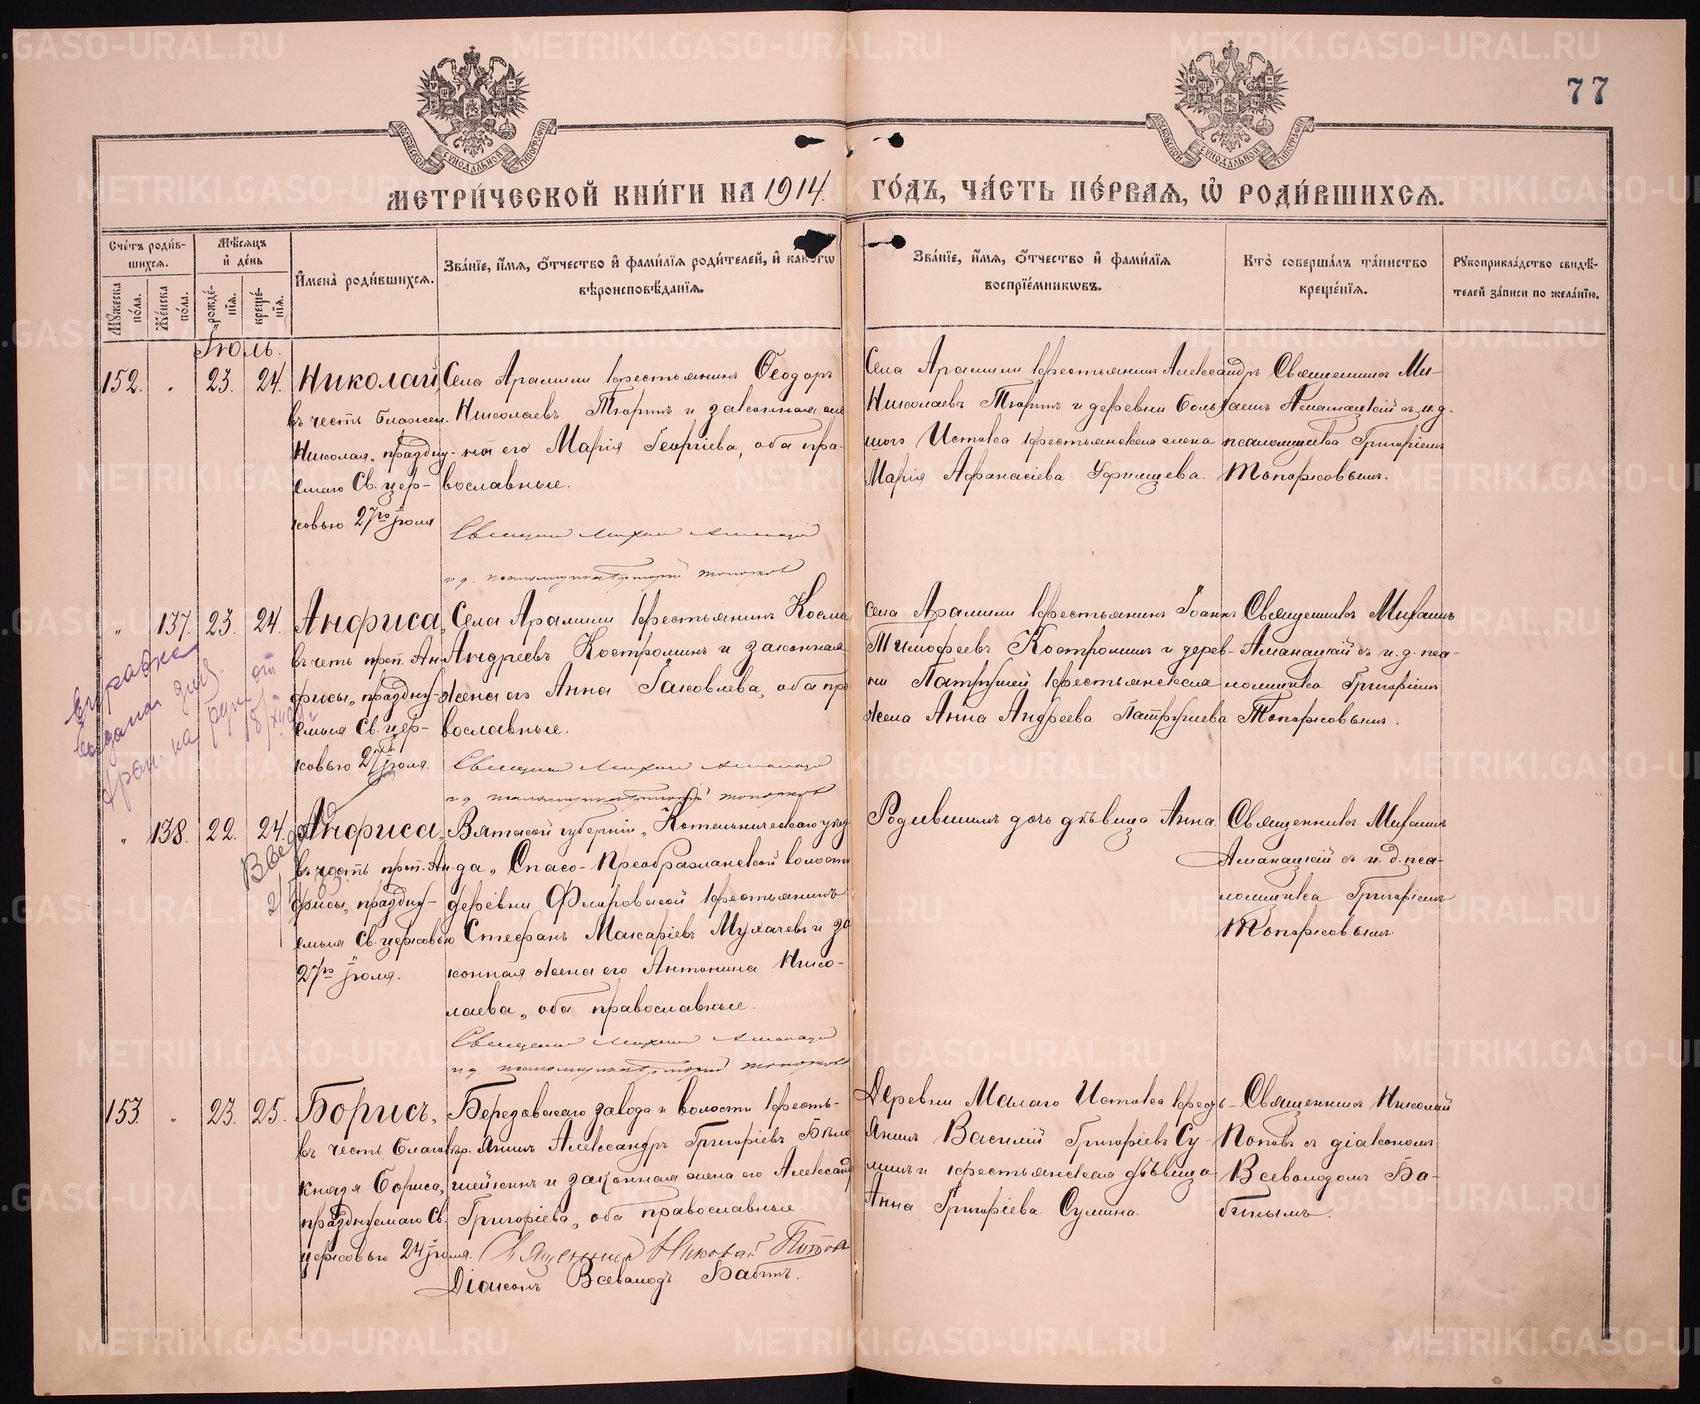 77
МОСКОВСКОЙ СѴНОДАЛЬНОЙ ТИПОГРАФІИ
МОСКОВСКОЙ СѴНОДАЛЬНОЙ ТИПОГРАФІИ
МЕТРИ́ЧЕСКОЙ КНИ́ГИ НА 1914 ГО́ДЪ, ЧА́СТЬ ПЕ́РВАѦ, Ѡ҆ РОДИ́ВШИХСѦ.
Сче́тъ роди́в-
шихсѧ.
Мѣ́сѧцъ
и҆ де́нь
Мꙋ́жеска по́ла.
Же́нска по́ла.
рожде́-
нїѧ.
креще́-
нїѧ.
И҆мена̀ роди́вшихсѧ.
Зва́нїе, и҆́мѧ, ѻ҆́тчество и҆ фами́лїѧ роди́телей, и҆ како́гѡ
вѣроисповѣ́данїѧ.
Зва́нїе, и҆́мѧ, ѻ҆́тчество и҆ фами́лїѧ
воспрїе́мникѡвъ.
Кто̀ соверша́лъ та́инство
креще́нїѧ.
Рꙋкоприкла́дство свидѣ́-
телей за́писи по жела́нїю.
Іюль.
152. " 23. 24.
Николай,
въ честь блажен.
Николая, праздну-
емаго Св. цер-
ковью 27го іюля
Села Арамили крестьянинъ Ѳеодоръ
Николаевъ Тюринъ и законная же-
на его Марія Георгіева, оба пра-
вославные.
Села Арамили крестьянинъ Александръ
Николаевъ Тюринъ и деревни Боль-
шого Истока крестьянская жена
Марія Афанасіева
Священникъ Ми-
хаилъ Аманацкій съ и.д.
псаломщика Григоріемъ
Топорковымъ.
" 137. 23. 24.
Анфиса,
въ честь преп. Ан-
фисы, праздну-
емыя Св. цер-
ковью 27 іюля.
Села Арамили крестьянинъ Косма
Андреевъ Костроминъ и законная
жена его Анна Іаковлева, оба пра-
вославные.
Села Арамили крестьянинъ Іоаннъ
Тимофеевъ Костроминъ и дерев-
ни Патрушей крестьянская
жена Анна Андреева Патрушева
Священникъ Михаилъ
Аманацкій съ и. д. пса-
ломщика Григоріемъ
Топорковымъ.
" 138. 22. 24.
Анфиса,
въ честь преп. Ан-
фисы, праздну-
емыя Св. церковью
27го іюля.
Вятской губерніи, Котельническаго уѣз-
да, Спасо-Преображенской волости
деревни Фляровской крестьянинъ
Стефанъ Макаріевъ Мухачевъ и за-
конная жена его Антонина Нико-
лаева, оба православные.
Родившихъ дочь дѣвица Анна.
Священникъ Михаилъ
Аманацкій съ и. д. пса-
ломщика Григоріемъ
Топорковымъ
153. " 23. 25.
Борисъ,
въ честь благовѣр.
князя Бориса,
празднуемаго Св.
церковью 24 іюля.
Березовскаго завода и волости кресть-
янинъ Александръ Григоріевъ Бѣло-
шейкинъ и законная жена его Александра
Григоріева, оба православные.
Священникъ Николай Поповъ
Діаконъ Всеволодъ Бабинъ.
Деревни Малаго Истока крест-
янинъ Василій Григоріевъ Су-
линъ и крестьянская дѣвица
Анна Григоріева Сулина.
Священникъ Николай
Поповъ съ діакономъ
Всеволодомъ Ба-
бинымъ.
METRIKI.GASO-URAL.RU